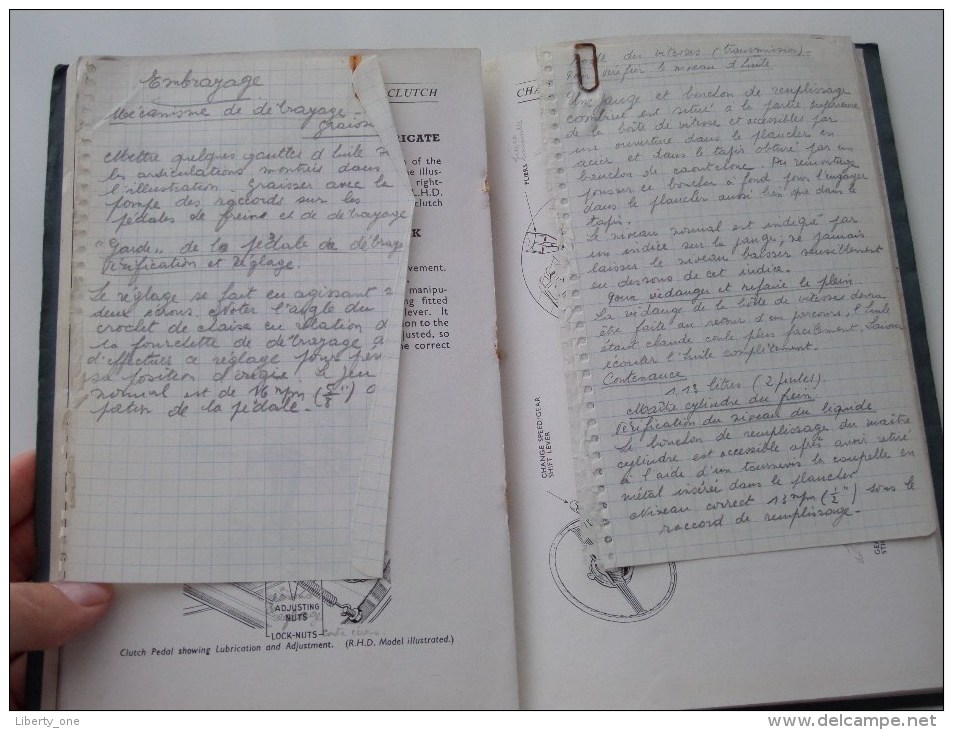 Embrayage
Mécanisme de débrayage
Mettre quelques gouttes d'huile
les articulations montrées dans
l'illustration. Graisser avec la
pompe des raccords sur les
pédales de freins et de débrayage
"Garde" de la pédale de
Vérification et réglage.
Le réglage se fait en agissant
deux écrous. Noter l'angle du
crochet de claise en relation
la fourchette de débrayage
d'effectuer ce réglage pour
sa position d'origie. Le jeu
normal est de 16 mpm (5/8")
de la pédale.
CLUTCH
RIGATE
of the
he illus-
right-
L.H.D.
clutch
K
vement.
manipu-
ng fitted
lever. It
ion to the
justed, so
he correct
ADJUSTING
NUTS
LOCK-NUTS
Clutch Pedal showing Lubrication and Adjustment. (R.H.D. Model illustrated.)
CHA
des vitesses (transmission).
vérifier le niveau d'huile
Une jauge et bouchon de remplissage
combiné est situé à la partie supérieure
de la boîte de vitesse et accessibles par
une ouverture dans le plancher en
acier et dans le tapis obturé par un
bouchon de caoutchouc. Au remontage
pousser ce bouchon à fond pour l'engager
dans le plancher aussi bien que dans le
tapis.
Le niveau normal est indiqué par
un indice sur la jauge, ne jamais
laisser le niveau baisser sensiblement
en dessous de cet indice.
Pour vidanger et refaire le plein
La vidange de la boîte de vitesses devra
être faite au retour d'un parcours, l'huile
étant chaude coule plus facilement, laisser
écouler l'huile complètement.
Contenance
1.13 litres (2 pintes).
Maître cylindre du frein
Vérification du niveau du liquide
Le bouchon de remplissage du maître
cylindre est accessible après avoir retiré
à l'aide d'un tournevis la coupelle en
métal insérée dans le plancher
Niveau correct 13 mpm (1/2") sous le
raccord de remplissage.
PLIERS
CHANGE SPEED/GEAR
SHIFT LEVER
GE
STI
Liberty_one
http://www.delcampe.net